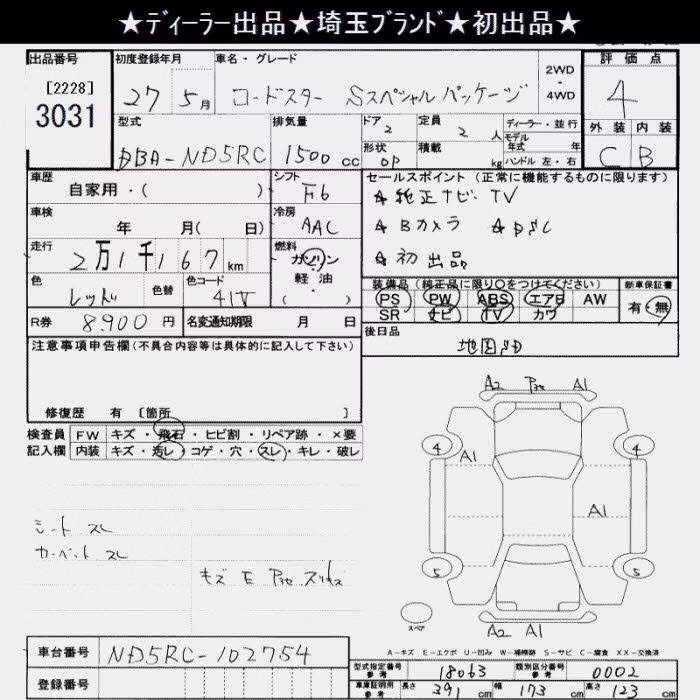 ★ディーラー出品★埼玉ブランド★初出品★
出品番号
[2228]
3031
初度登録年月
27 5月
車名・グレード
ロードスター Sスペシャルパッケージ
2WD
・
4WD
評価点
4
外装 内装
C B
型式
DBA-ND5RC
排気量
1500 cc
ドア 2
形状 OP
定員 2 人
積載 kg
ディーラー・並行
モデル
年式 年
ハンドル 左・右
車歴
自家用・( )
シフト
F6
車検
年 月( 日)
冷房
AAC
走行
2万1千167 km
燃料
ガソリン
・
軽油
・
( )
色
レッド
色替
色コード
41V
R券 8,900 円
名変通知期限 月 日
セールスポイント (正常に機能するものに限ります)
★純正ナビ・TV
★Bカメラ ★DSC
★初出品
装備品 (純正品に限り○をつけてください)
PS PW ABS エアB AW
SR ナビ TV カワ
新車保証書
有・無
後日品
地図SD
注意事項申告欄(不具合内容等は具体的に記入して下さい)
修復歴 有 [箇所 ]
検査員
記入欄
FW キズ・飛石・ヒビ割・リペア跡・×要
内装 キズ・汚レ・コゲ・穴・スレ・キレ・破レ
シート スレ
カーペット スレ
キズ E
A2 A1
4 4
A1
A1
5 5
スペア
A2 A1
A-キズ E-エクボ U-凹み W-補修跡 S-サビ C-腐食 XX-交換済
車台番号 ND5RC-102754
登録番号
型式指定番号
参考
18063
類別区分番号
参考
0002
車庫証明用
参考
長さ 391 cm 幅 173 cm 高さ 123 cm